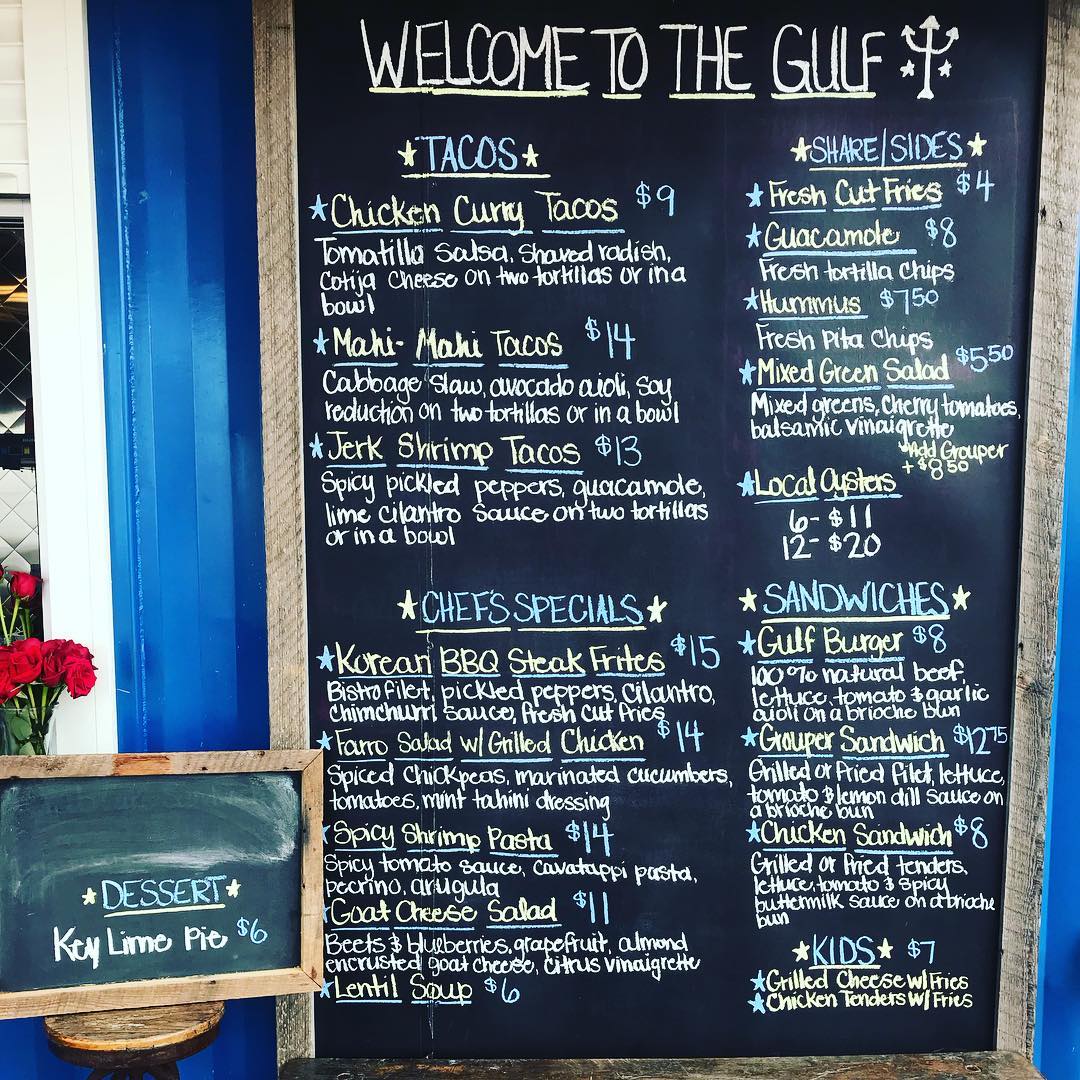 WELCOME TO THE GULF
TACOS
Chicken Curry Tacos $9
Tomatilla Salsa, Shaved radish,
Cotija Cheese on two tortillas or in a
bowl
Mahi-Mahi Tacos $14
Cabbage slaw, avocado aioli, soy
reduction on two tortillas or in a bowl
Jerk Shrimp Tacos $13
Spicy pickled peppers, guacamole,
lime cilantro sauce on two tortillas
or in a bowl
CHEF'S SPECIALS
Korean BBQ Steak Frites $15
Bistro filet, pickled peppers, Cilantro,
Chimchurri sauce, fresh cut fries
Farro Salad w/Grilled Chicken $14
Spiced Chickpeas, marinated cucumbers,
tomatoes, mint tahini dressing
Spicy Shrimp Pasta $14
Spicy tomato sauce, cavatappi pasta,
pecrino, arugula
Goat Cheese Salad $11
Beets & blueberries, grapefruit, almond
encrusted goat cheese, citrus vinaigrette
Lentil Soup $6
SHARE/SIDES
Fresh Cut Fries $4
Guacamole $8
Fresh tortilla chips
Hummus $7.50
Fresh Pita Chips
Mixed Green Salad $5.50
Mixed greens, cherry tomatoes,
balsamic vinaigrette
*Add Grouper
+ $8.50
Local Oysters
6- $11
12- $20
SANDWICHES
Gulf Burger $8
100% natural beef,
lettuce, tomato & garlic
aioli on a brioche bun
Grouper Sandwich $12.75
Grilled or fried filet, lettuce,
tomato & lemon dill sauce on
a brioche bun
Chicken Sandwich $8
Grilled or fried tenders,
lettuce, tomato & spicy
buttermilk sauce on a brioche
bun
KIDS $7
Grilled Cheese w/Fries
Chicken Tenders w/Fries
DESSERT
Key Lime Pie $6